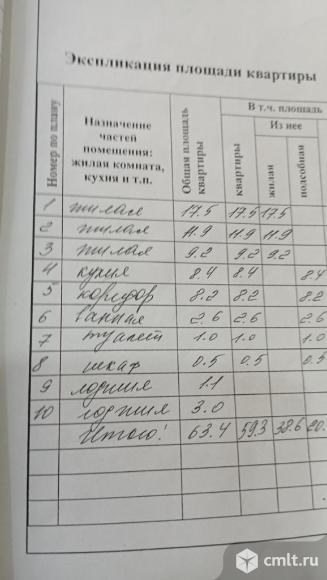 Экспликация площади квартиры
Номер по плану
Назначение частей помещения: жилая комната, кухня и т.п.
Общая площадь квартиры
В т.ч. площадь
квартиры
Из нее
жилая
подсобная
1 жилая 17.5 17.5 17.5
2 жилая 11.9 11.9 11.9
3 жилая 9.2 9.2 9.2
4 кухня 8.4 8.4 8.4
5 коридор 8.2 8.2 8.2
6 ванная 2.6 2.6 2.6
7 туалет 1.0 1.0 1.0
8 шкаф 0.5 0.5 0.5
9 лоджия 1.1
10 лоджия 3.0
Итого: 63.4 59.3 38.6 20.
cmlt.ru